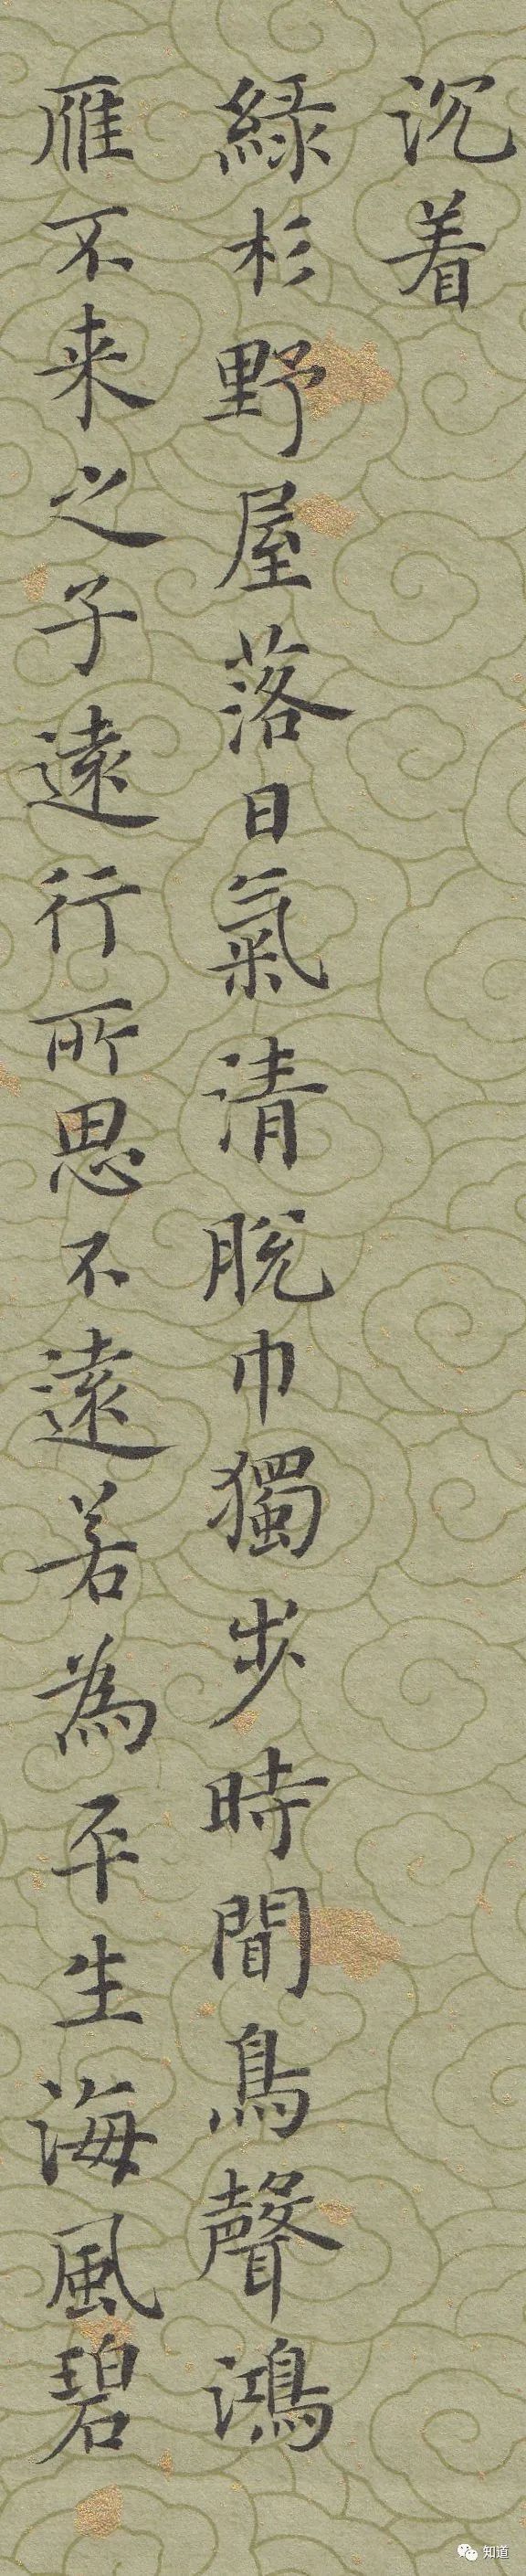 沉着
綠杉野屋落日氣清脫巾獨步時間鳥聲鴻
雁不来之子遠行所思不遠若為平生海風碧
知道